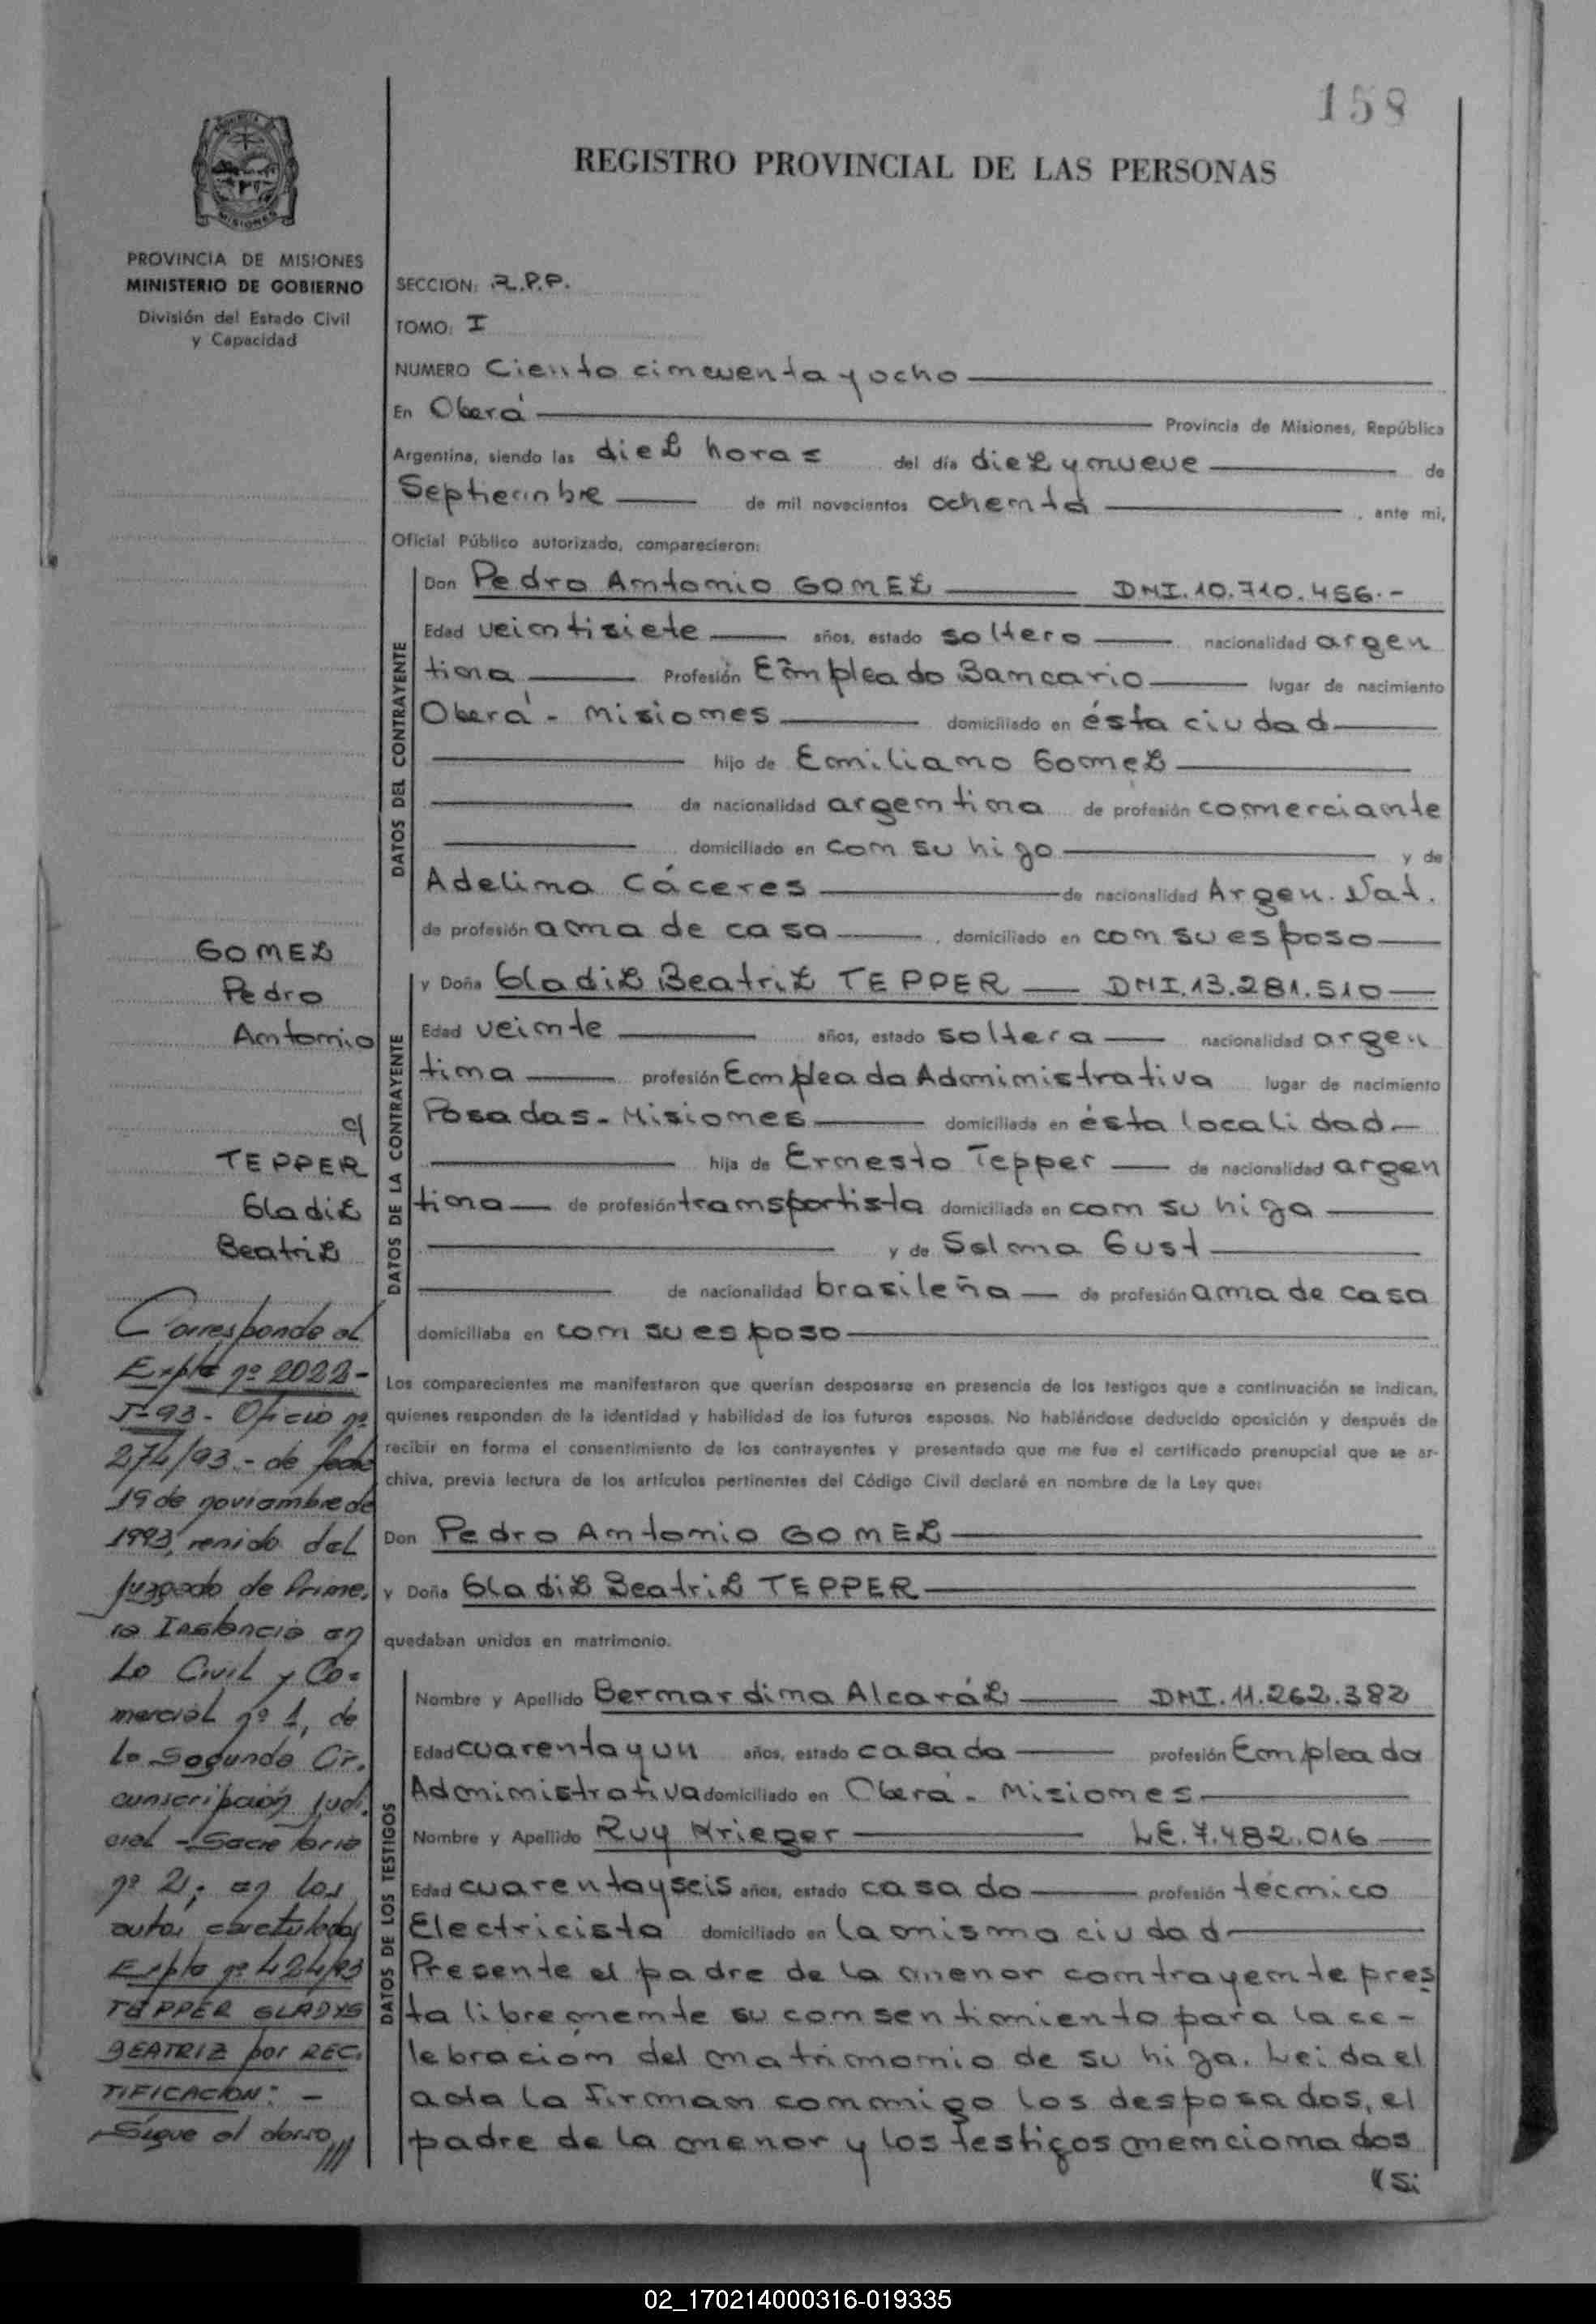 158
REGISTRO PROVINCIAL DE LAS PERSONAS
PROVINCIA DE MISIONES
MINISTERIO DE GOBIERNO
División del Estado Civil
y Capacidad
SECCION: R.P.P.
TOMO: I
NUMERO Ciento cincuenta y ocho
En Oberá Provincia de Misiones, República
Argentina, siendo las diez horas del día diez y nueve de
Septiembre de mil novecientos ochenta, ante mi,
Oficial Público autorizado, comparecieron:
DATOS DEL CONTRAYENTE
Don Pedro Antonio GOMEZ DNI.10.710.456.-
Edad veintisiete años, estado soltero nacionalidad argen
tina Profesión Empleado Bancario lugar de nacimiento
Oberá - Misiones domiciliado en ésta ciudad
hijo de Emiliano Gomez
de nacionalidad argentina de profesión comerciante
domiciliado en con su hijo y de
Adelina Cáceres de nacionalidad Argen. Nat.
de profesión ama de casa, domiciliado en con su esposo
DATOS DE LA CONTRAYENTE
y Doña Gladiz Beatriz TEPPER DNI.13.281.510
Edad veinte años, estado soltera nacionalidad argen
tina profesión Empleada Administrativa lugar de nacimiento
Posadas - Misiones domiciliada en ésta localidad
hija de Ernesto Tepper de nacionalidad argen
tina de profesión transportista domiciliada en con su hija
y de Selma Gust
de nacionalidad brasileña de profesión ama de casa
domiciliaba en con su esposo
Los comparecientes me manifestaron que querían desposarse en presencia de los testigos que a continuación se indican,
quienes responden de la identidad y habilidad de los futuros esposos. No habiéndose deducido oposición y después de
recibir en forma el consentimiento de los contrayentes y presentado que me fue el certificado prenupcial que se ar-
chiva, previa lectura de los artículos pertinentes del Código Civil declaré en nombre de la Ley que:
Don Pedro Antonio GOMEZ
y Doña Gladiz Beatriz TEPPER
quedaban unidos en matrimonio.
DATOS DE LOS TESTIGOS
Nombre y Apellido Bernardina Alcaráz DNI.11.262.382
Edad cuarenta y un años, estado casada profesión Empleada
Administrativa domiciliado en Oberá - Misiones
Nombre y Apellido Ruy Krieger L.E.7.482.016
Edad cuarenta y seis años, estado casado profesión técnico
Electricista domiciliado en la misma ciudad
Presente el padre de la menor contrayente pres
ta libremente su consentimiento para la ce-
lebración del matrimonio de su hija. Leida el
acta la firman conmigo los desposados, el
padre de la menor y los testigos mencionados
"Si
GOMEZ
Pedro
Antonio
c/
TEPPER
Gladiz
Beatriz
Corresponde al
Expte nº 2022-
T-93.- Oficio nº
274/93.- de fecha
19 de noviembre de
1993, venido del
Juzgado de Prime.
ra Instancia en
Lo Civil y Co=
mercial nº 1, de
la Segunda Cir.
cunscripción Judi.
cial - Secretaria
nº 2; en los
autos caratulados
Expte nº 424/93
TEPPER GLADYS
BEATRIZ por REC.
TIFICACION: -
Sigue al dorso///
02_170214000316-019335